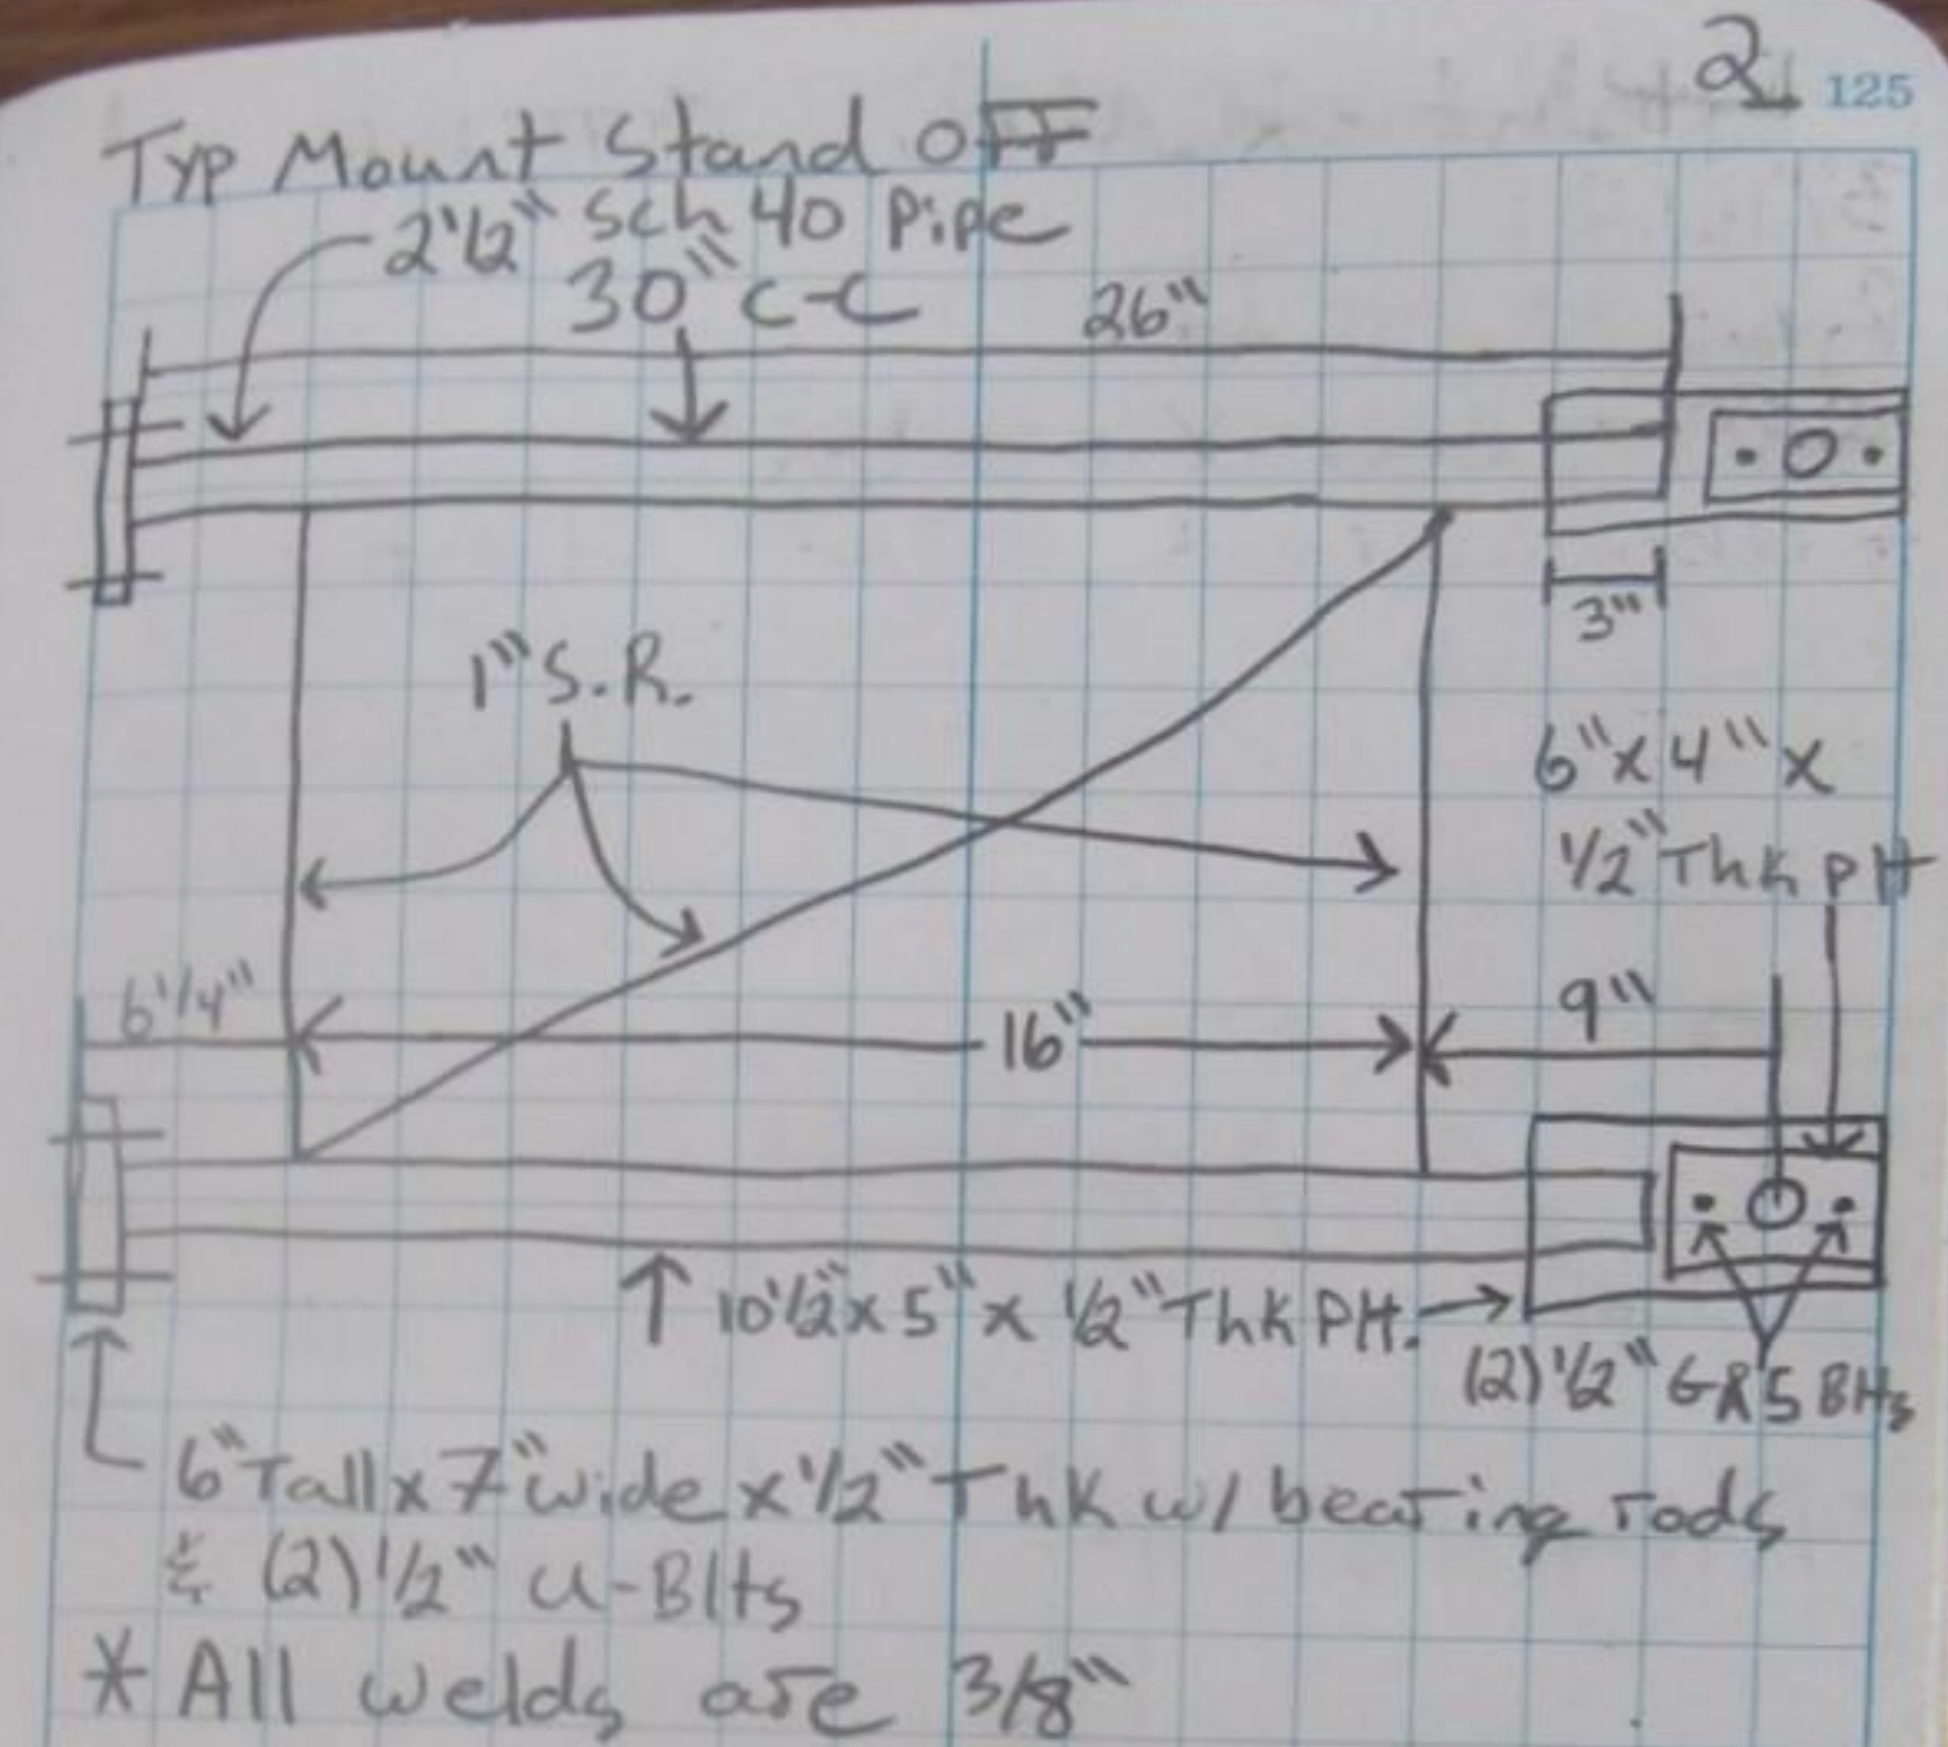 2 125
Typ Mount Stand OFF
2 1/2" Sch 40 Pipe
30" C-C
26"
3"
1" S.R.
6" x 4" x
1/2" Thk Plt
6 1/4"
16"
9"
10 1/2" x 5" x 1/2" Thk Plt.
(2) 1/2" GR5 Blts
6" Tall x 7" wide x 1/2" Thk w/ bearing rods
& (2) 1/2" U-Blts
* All welds are 3/8"